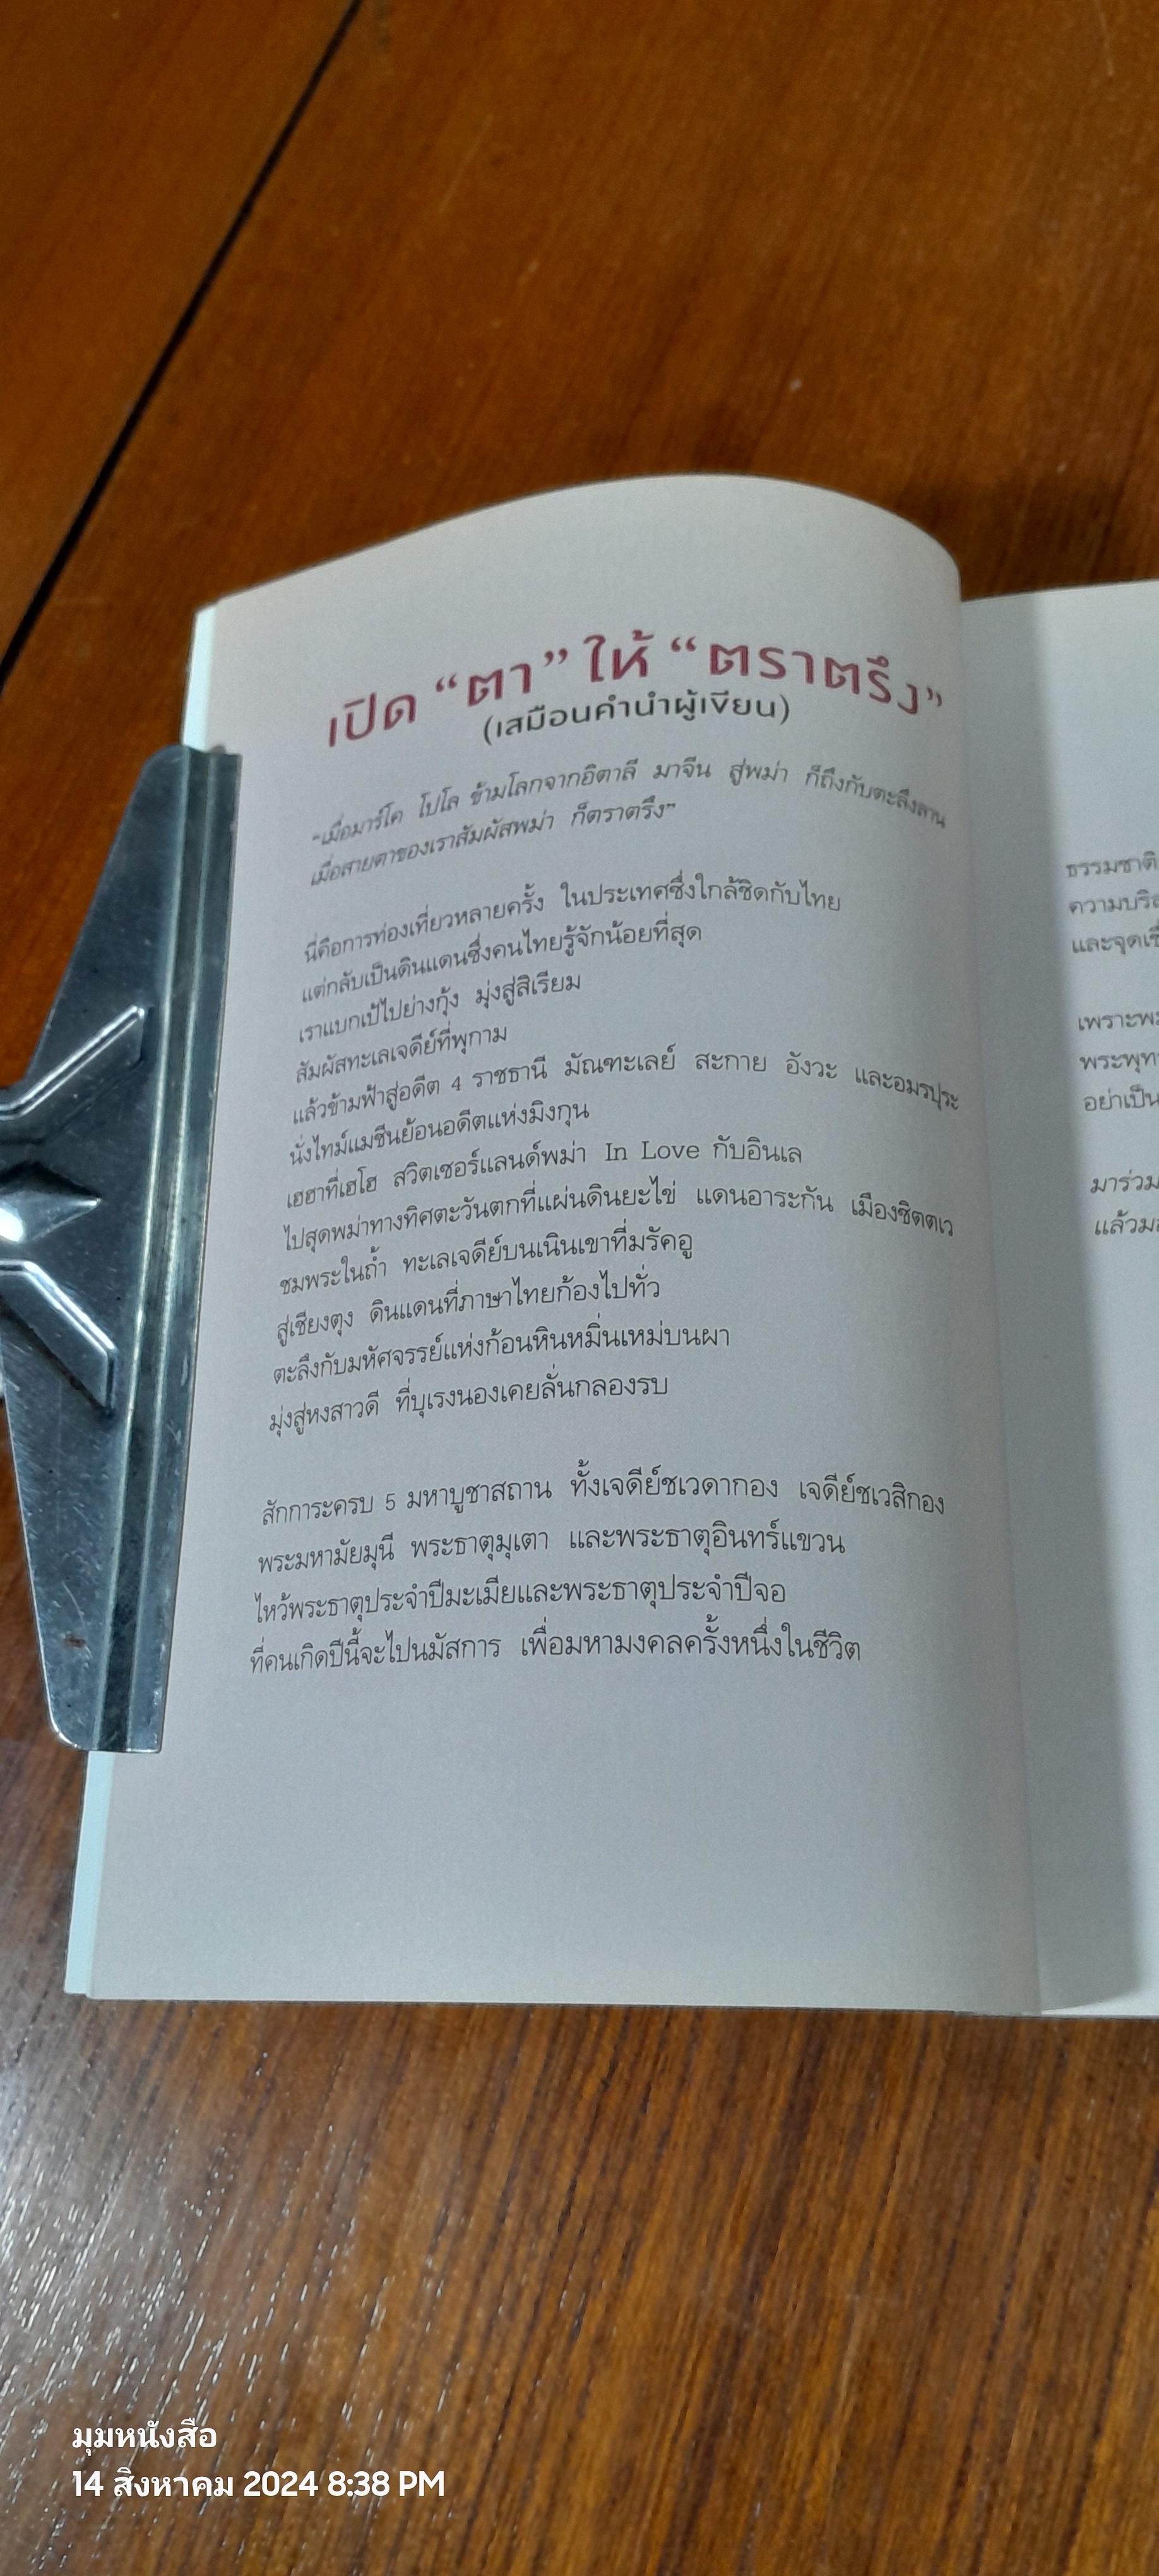 เปิด “ตา” ให้ “ตราตรึง”
(เสมือนคำนำผู้เขียน)
“เมื่อมาร์โค โปโล ข้ามโลกจากอิตาลี มาจีน สู่พม่า ก็ถึงกับตะลึงลาน
เมื่อสายตาของเราสัมผัสพม่า ก็ตราตรึง”
นี่คือการท่องเที่ยวหลายครั้ง ในประเทศซึ่งใกล้ชิดกับไทย
แต่กลับเป็นดินแดนซึ่งคนไทยรู้จักน้อยที่สุด
เราแบกเป้ไปย่างกุ้ง มุ่งสู่สิเรียม
สัมผัสทะเลเจดีย์ที่พุกาม
แล้วข้ามฟ้าสู่อดีต 4 ราชธานี มัณฑะเลย์ สะกาย อังวะ และอมรปุระ
นั่งไทม์แมชีนย้อนอดีตแห่งมิงกุน
เฮฮาที่เฮโฮ สวิตเซอร์แลนด์พม่า In Love กับอินเล
ไปสุดพม่าทางทิศตะวันตกที่แผ่นดินยะไข่ แดนอาระกัน เมืองซิตตเว
ชมพระในถ้ำ ทะเลเจดีย์บนเนินเขาที่มรัคอู
สู่เชียงตุง ดินแดนที่ภาษาไทยก้องไปทั่ว
ตะลึงกับมหัศจรรย์แห่งก้อนหินหมิ่นเหม่บนผา
มุ่งสู่หงสาวดี ที่บุเรงนองเคยลั่นกลองรบ
สักการะครบ 5 มหาบูชาสถาน ทั้งเจดีย์ชเวดากอง เจดีย์ชเวสิกอง
พระมหามัยมุนี พระธาตุมุเตา และพระธาตุอินทร์แขวน
ไหว้พระธาตุประจำปีมะเมียและพระธาตุประจำปีจอ
ที่คนเกิดปีนี้จะไปนมัสการ เพื่อมหามงคลครั้งหนึ่งในชีวิต
ธรรมชาติ
และจุดเ
อย่าเป็น
มาร่วม
มุมหนังสือ
14 สิงหาคม 2024 8:38 PM